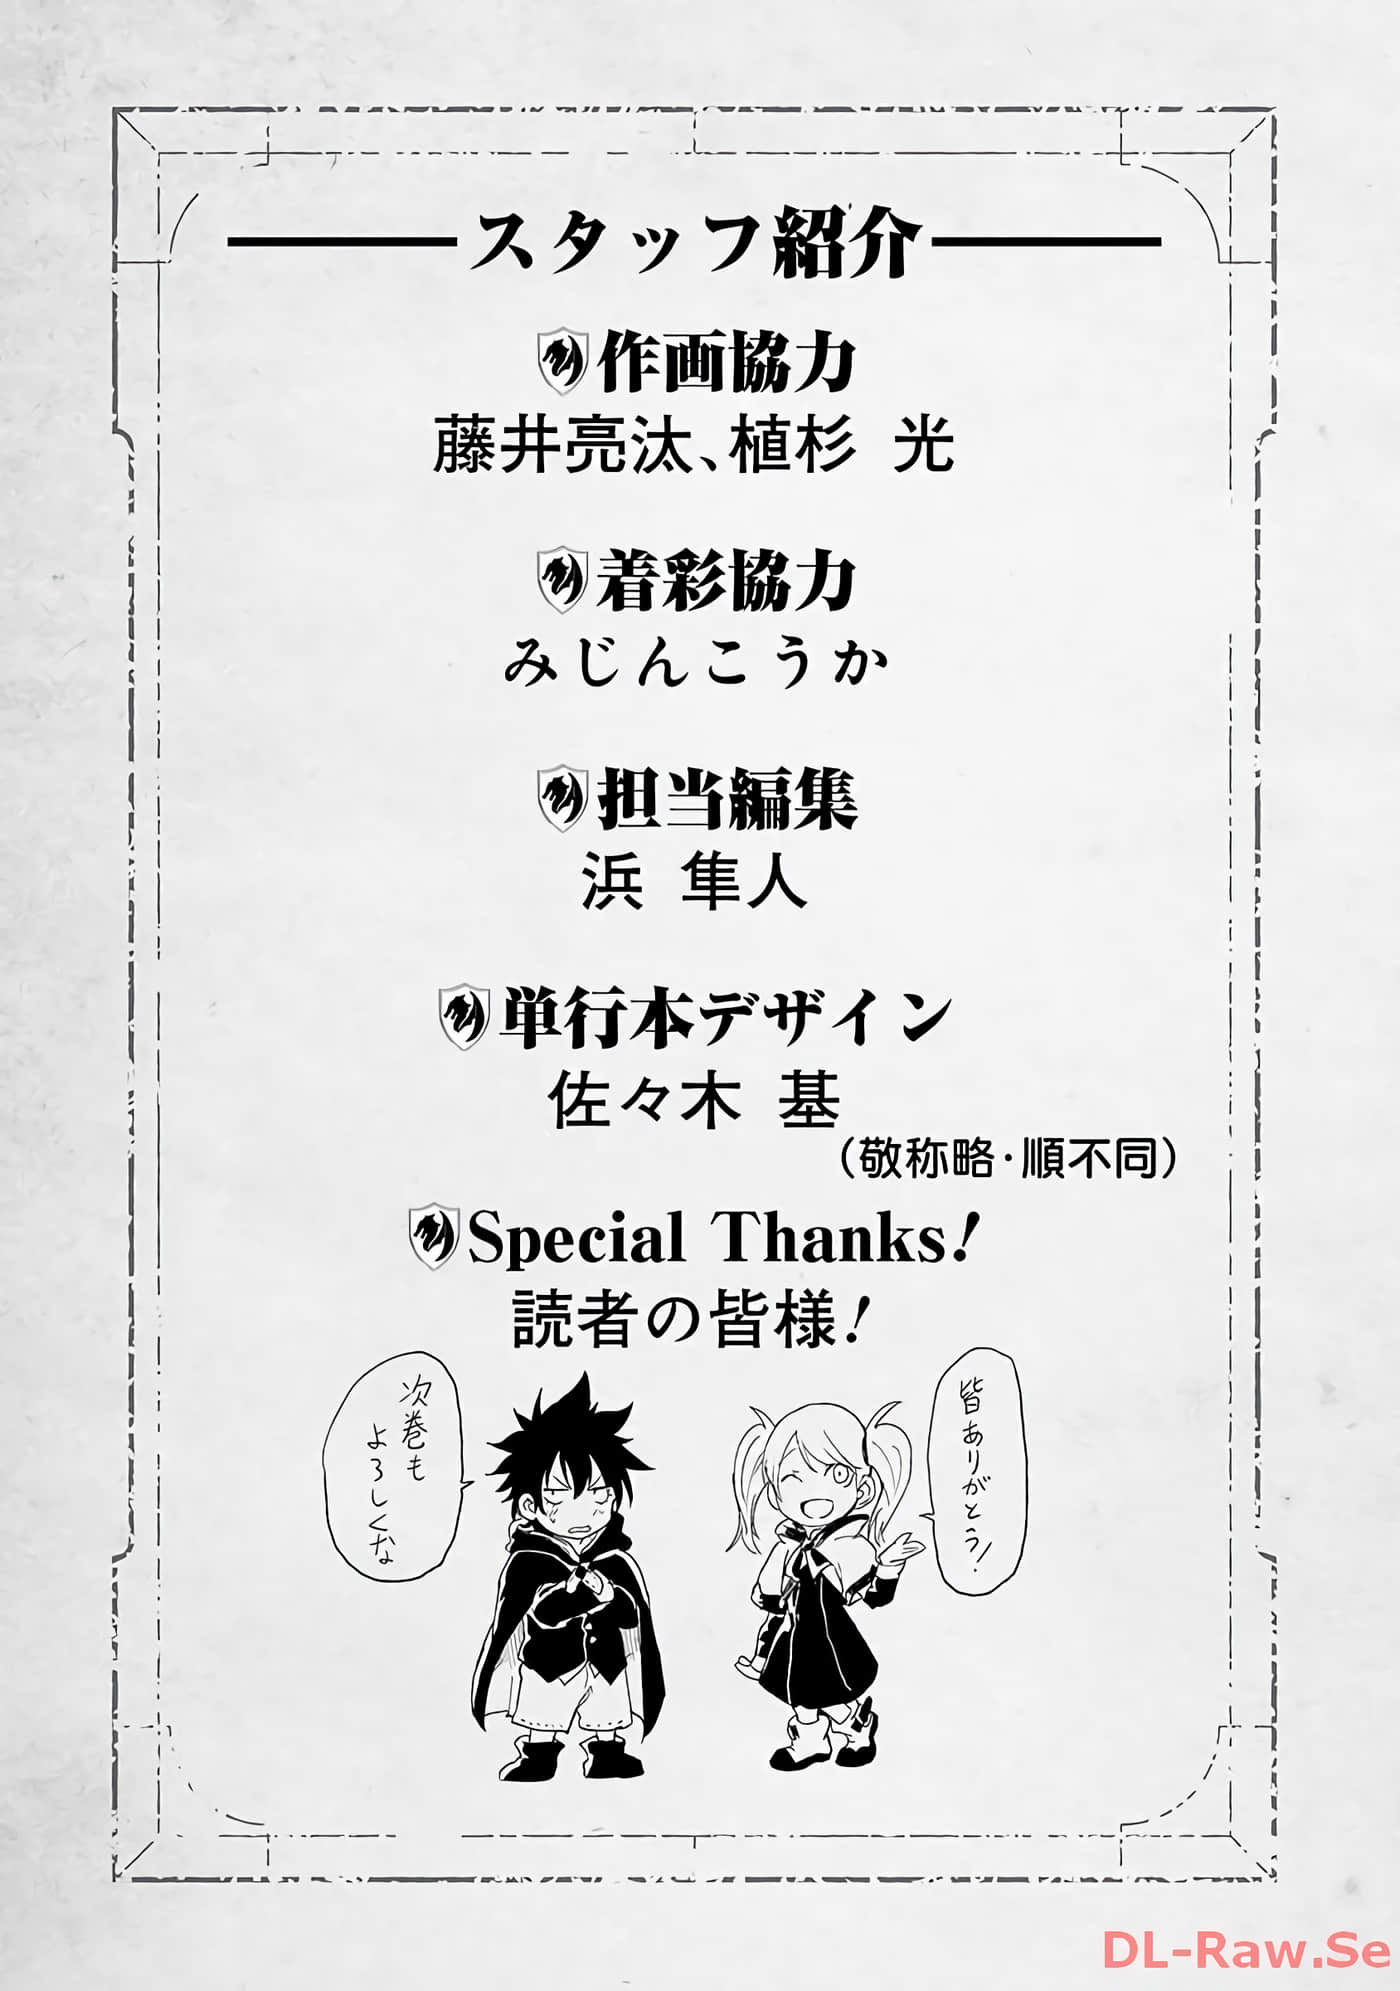 スタッフ紹介
作画協力
藤井亮汰、植杉 光
着彩協力
みじんこうか
担当編集
浜 隼人
単行本デザイン
佐々木 基
（敬称略・順不同）
Special Thanks!
読者の皆様！
皆ありがとう！
次巻も
よろしくな
DL-Raw.Se